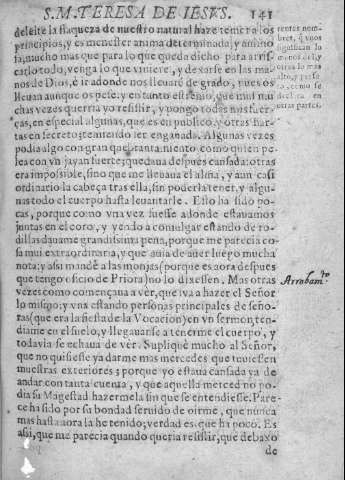 S. M. TERESA DE IESVS. 141
deleite la flaqueza de nuestro natural haze temer a los
principios, y es menester anima determinada, y animo
sa, mucho mas que para lo que queda dicho para arris-
carlo todo, venga lo que viniere, y dexarse en las ma-
nos de Dios, è ir adonde nos lleuarē de grado, pues os
lleuan aunque os pese: y en tanto estremo, que mui mu
chas vezes querria yo resistir, y pongo todas mis fuer-
ças, en especial algunas, que es en publico, y otras har-
tas en secreto, temiendo ser engañada. Algunas vezes
podia algo con gran quebrantamiento: como quien pe
lea con vn jayan fuerte, quedaua despues cansada: otras
era imposible, sino que me lleuaua el alma, y aun casi
ordinario la cabeça tras ella, sin poderla tener, y algu-
nas todo el cuerpo hasta leuantarle. Esto ha sido po-
cas, porque como vna vez fuesse adonde estauamos
juntas en el coro, y yendo a comulgar estando de ro-
dillas dauame grandissima pena, porque me parecia co-
sa mui extraordinaria, y que auia de auer luego mucha
nota: y asi mandè a las monjas (porque es aora despues
que tengo oficio de Priora) no lo dixessen. Mas otras
vezes como començaua a ver, que iva a hazer el Señor
lo mismo: y vna estando personas principales de seño-
ras (que era la fiesta de la Vocacion) en vn sermon, ten-
diame en el suelo, y llegauanse a tenerme el cuerpo, y
todavia se echaua de ver. Supliquè mucho al Señor,
que no quisiesse ya darme mas mercedes que tuuiessen
muestras exteriores; porque yo estaua cansada ya de
andar con tanta cuenta, y que aquella merced no po-
dia su Magestad hazermela sin que se entendiesse. Pare-
ce ha sido por su bondad seruido de oirme, que nunca
mas hasta aora la he tenido; verdad es que ha poco. Es
assi, que me parecia quando queria resistir, que debaxo
de
rentes nom-
bres, q̄ vnos
significan lo
menos del, y
otros lo mas
alto, y perfe
to, como se
declara en
otras partes.
Arrobam.to